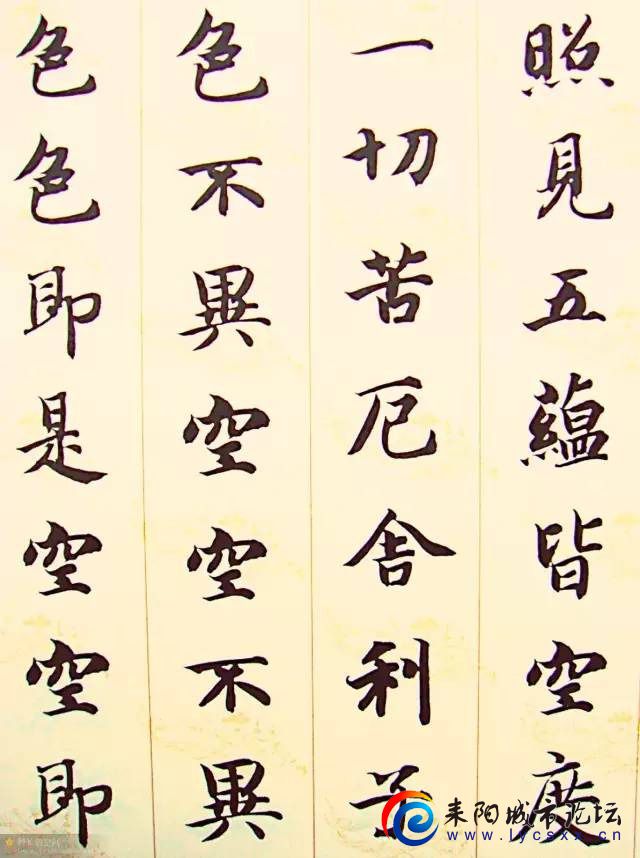 照見五蘊皆空度
一切苦厄舍利子
色不異空空不異
色色即是空空即
耒阳城市论坛
www.lycsxx.cn